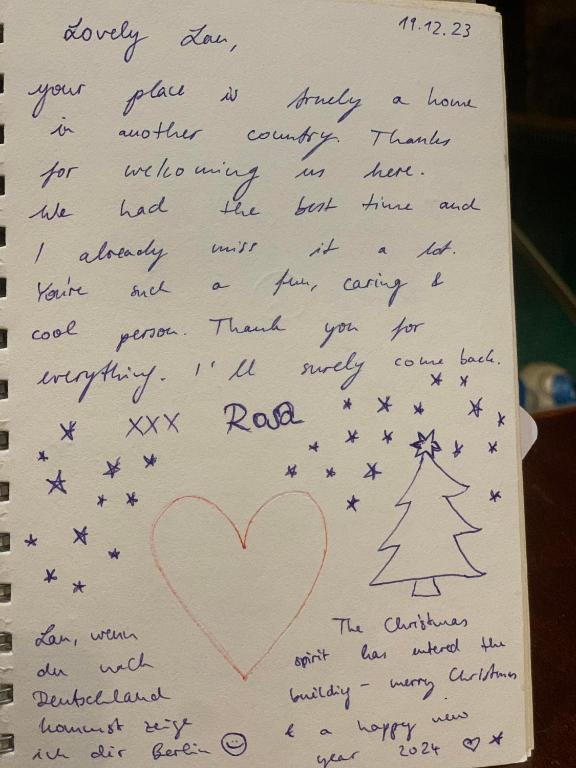 19.12.23
Lovely Lan,
your place is truely a home
in another country. Thanks
for welcoming us here.
We had the best time and
I already miss it a lot.
You're such a fun, caring &
cool person. Thank you for
everything. I'll surely come back.
XXX Rosa
Lan, wenn
du nach
Deutschland
kommst zeige
ich dir Berlin
The Christmas
spirit has entered the
building – merry Christmas
& a happy new
year 2024